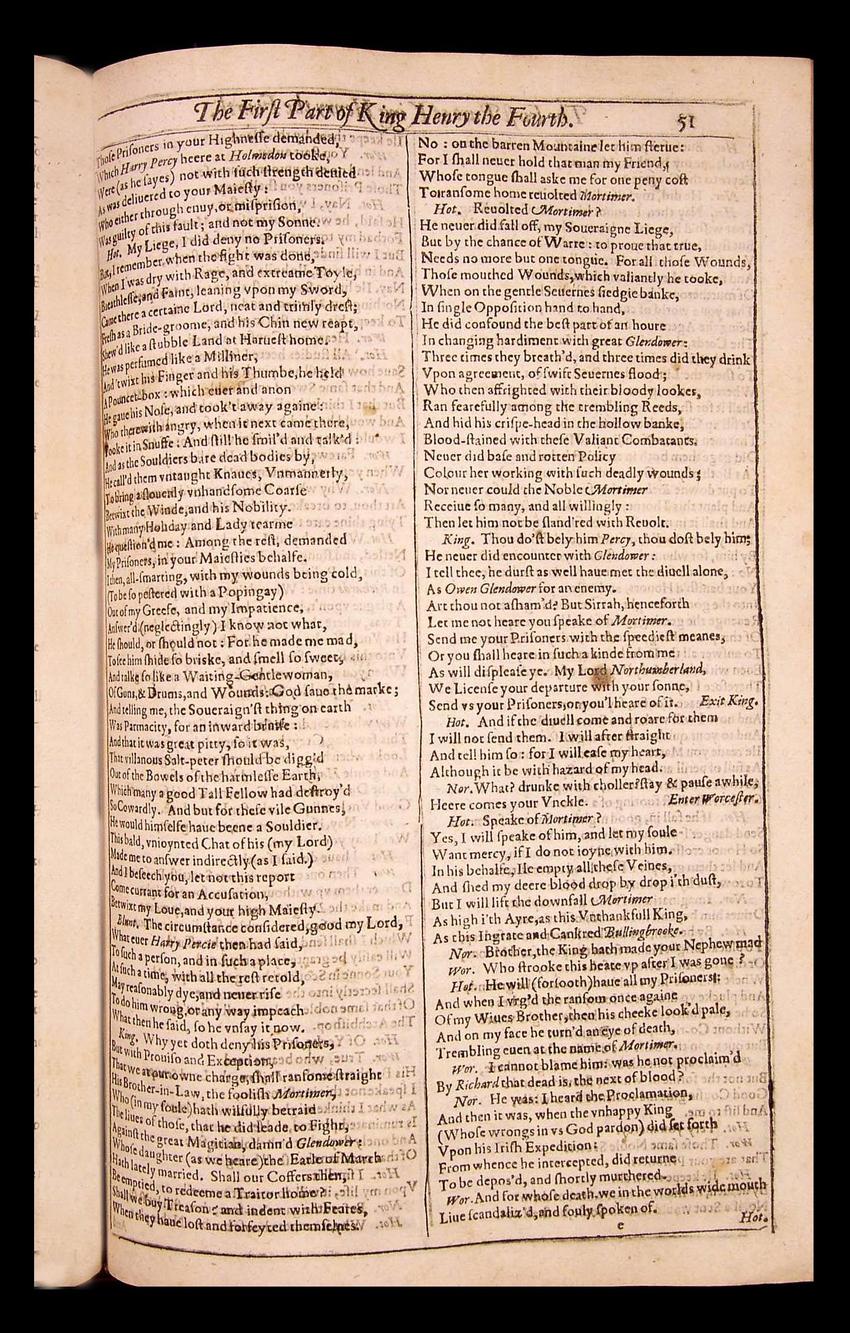 The First Part of King Henry the Fourth.
51
Those Prisoners in your Highnesse demanded,
Which Harry Percy heere at Holmedon tooke,
Were (as he sayes) not with such strength denied
As was deliuered to your Maiesty:
Who either through enuy, or misprision,
Was guilty of this fault; and not my Sonne.
Hot. My Liege, I did deny no Prisoners.
But, I remember when the fight was done,
When I was dry with Rage, and extreame Toyle,
Breathlesse, and Faint, leaning vpon my Sword,
Came there a certaine Lord, neat and trimly drest;
Fresh as a Bride-groome, and his Chin new reapt,
Shew'd like a stubble Land at Haruest home.
He was perfumed like a Milliner,
And 'twixt his Finger and his Thumbe, he held
A Pouncet-box: which euer and anon
He gaue his Nose, and took't away againe:
Who therewith angry, when it next came there,
Tooke it in Snuffe: And still he smil'd and talk'd:
And as the Souldiers bare dead bodies by,
He call'd them vntaught Knaues, Vnmannerly,
To bring a slouenly vnhandsome Coarse
Betwixt the Winde, and his Nobility.
With many Holiday and Lady tearme
He question'd me: Among the rest, demanded
My Prisoners, in your Maiesties behalfe.
I then, all-smarting, with my wounds being cold,
(To be so pestered with a Popingay)
Out of my Greefe, and my Impatience,
Answer'd (neglectingly) I know not what,
He should, or should not: For he made me mad,
To see him shide so briske, and smell so sweet,
And talke so like a Waiting-Gentlewoman,
Of Guns, & Drums, and Wounds: God saue the marke;
And telling me, the Soueraign'st thing on earth
Was Parmacity, for an inward bruise:
And that it was great pitty, so it was,
That villanous Salt-peter should be digg'd
Out of the Bowels of the harmlesse Earth,
Which many a good Tall Fellow had destroy'd
So Cowardly. And but for these vile Gunnes,
He would himselfe haue beene a Souldier.
This bald, vnioynted Chat of his (my Lord)
Made me to answer indirectly (as I said.)
And I beseech you, let not this report
Come currant for an Accusation,
Betwixt my Loue, and your high Maiesty.
Blunt. The circumstance considered, good my Lord,
What euer Harry Percie then had said,
To such a person, and in such a place,
At such a time, with all the rest retold,
May reasonably dye, and neuer rise
To do him wrong, or any way impeach
What then he said, so he vnsay it now.
King. Why yet doth deny his Prisoners,
But with Prouiso and Exception,
That we at our owne charge, shall ransome straight
His Brother-in-Law, the foolish Mortimer,
Who (in my soule) hath wilfully betraid
The liues of those, that he did leade to Fight,
Against the great Magitian, damn'd Glendower:
Whose daughter (as we heare) the Earle of March
Hath lately married. Shall our Coffers then,
Be emptied, to redeeme a Traitor home?
Shall we buy Treason? and indent with Feares,
When they haue lost and forfeyted themselues.
No: on the barren Mountaine let him sterue:
For I shall neuer hold that man my Friend,
Whose tongue shall aske me for one peny cost
To ransome home reuolted Mortimer.
Hot. Reuolted Mortimer?
He neuer did fall off, my Soueraigne Liege,
But by the chance of Warre: to proue that true,
Needs no more but one tongue. For all those Wounds,
Those mouthed Wounds, which valiantly he tooke,
When on the gentle Seuernes siedgie banke,
In single Opposition hand to hand,
He did confound the best part of an houre
In changing hardiment with great Glendower:
Three times they breath'd, and three times did they drink
Vpon agreement, of swift Seuernes flood;
Who then affrighted with their bloody lookes,
Ran fearefully among the trembling Reeds,
And hid his crispe-head in the hollow banke,
Blood-stained with these Valiant Combatants.
Neuer did base and rotten Policy
Colour her working with such deadly wounds;
Nor neuer could the Noble Mortimer
Receiue so many, and all willingly:
Then let him not be sland'red with Reuolt.
King. Thou do'st bely him Percy, thou dost bely him;
He neuer did encounter with Glendower:
I tell thee, he durst as well haue met the diuell alone,
As Owen Glendower for an enemy.
Art thou not asham'd? But Sirrah, henceforth
Let me not heare you speake of Mortimer.
Send me your Prisoners with the speediest meanes,
Or you shall heare in such a kinde from me
As will displease ye. My Lord Northumberland,
We License your departure with your sonne,
Send vs your Prisoners, or you'l heare of it. Exit King.
Hot. And if the diuell come and roare for them
I will not send them. I will after straight
And tell him so: for I will ease my heart,
Although it be with hazard of my head.
Nor. What? drunke with choller? stay & pause awhile,
Heere comes your Vnckle. Enter Worcester.
Hot. Speake of Mortimer?
Yes, I will speake of him, and let my soule
Want mercy, if I do not ioyne with him.
In his behalfe, Ile empty all these Veines,
And shed my deere blood drop by drop i'th dust,
But I will lift the downfall Mortimer
As high i'th Ayre, as this Vnthankfull King,
As this Ingrate and Cankred Bullingbrooke.
Nor. Brother, the King hath made your Nephew mad
Wor. Who strooke this heate vp after I was gone?
Hot. He will (forsooth) haue all my Prisoners:
And when I vrg'd the ransom once againe
Of my Wiues Brother, then his cheeke look'd pale,
And on my face he turn'd an eye of death,
Trembling euen at the name of Mortimer.
Wor. I cannot blame him: was he not proclaim'd
By Richard that dead is, the next of blood?
Nor. He was: I heard the Proclamation,
And then it was, when the vnhappy King
(Whose wrongs in vs God pardon) did set forth
Vpon his Irish Expedition:
From whence he intercepted, did returne
To be depos'd, and shortly murthered.
Wor. And for whose death, we in the worlds wide mouth
Liue scandaliz'd, and fouly spoken of.
e
Hot.